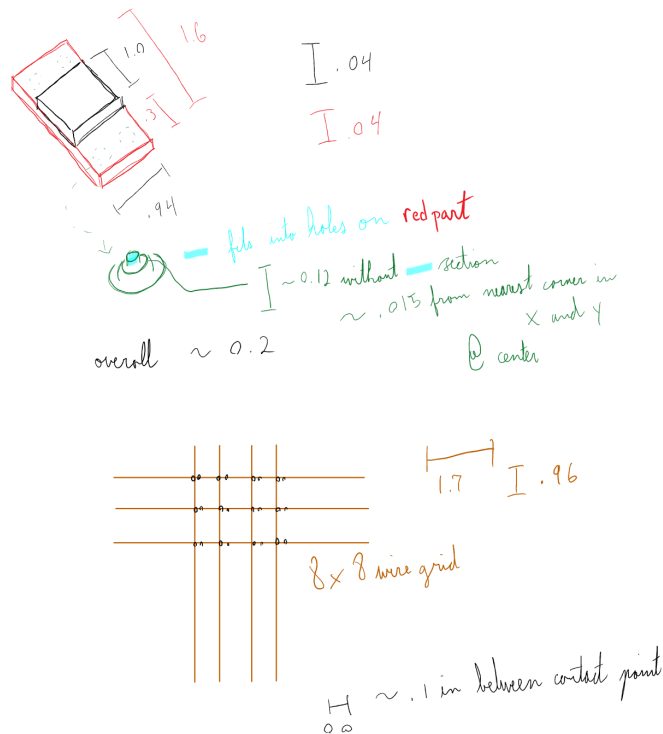 1.6
1.0
.04
.3
.04
.94
fits into holes on red part
~0.12 without section
~ .015 from nearest corner in
X and Y
@ center
overall ~ 0.2
1.7
.96
8x8 wire grid
~ .1 in between contact point